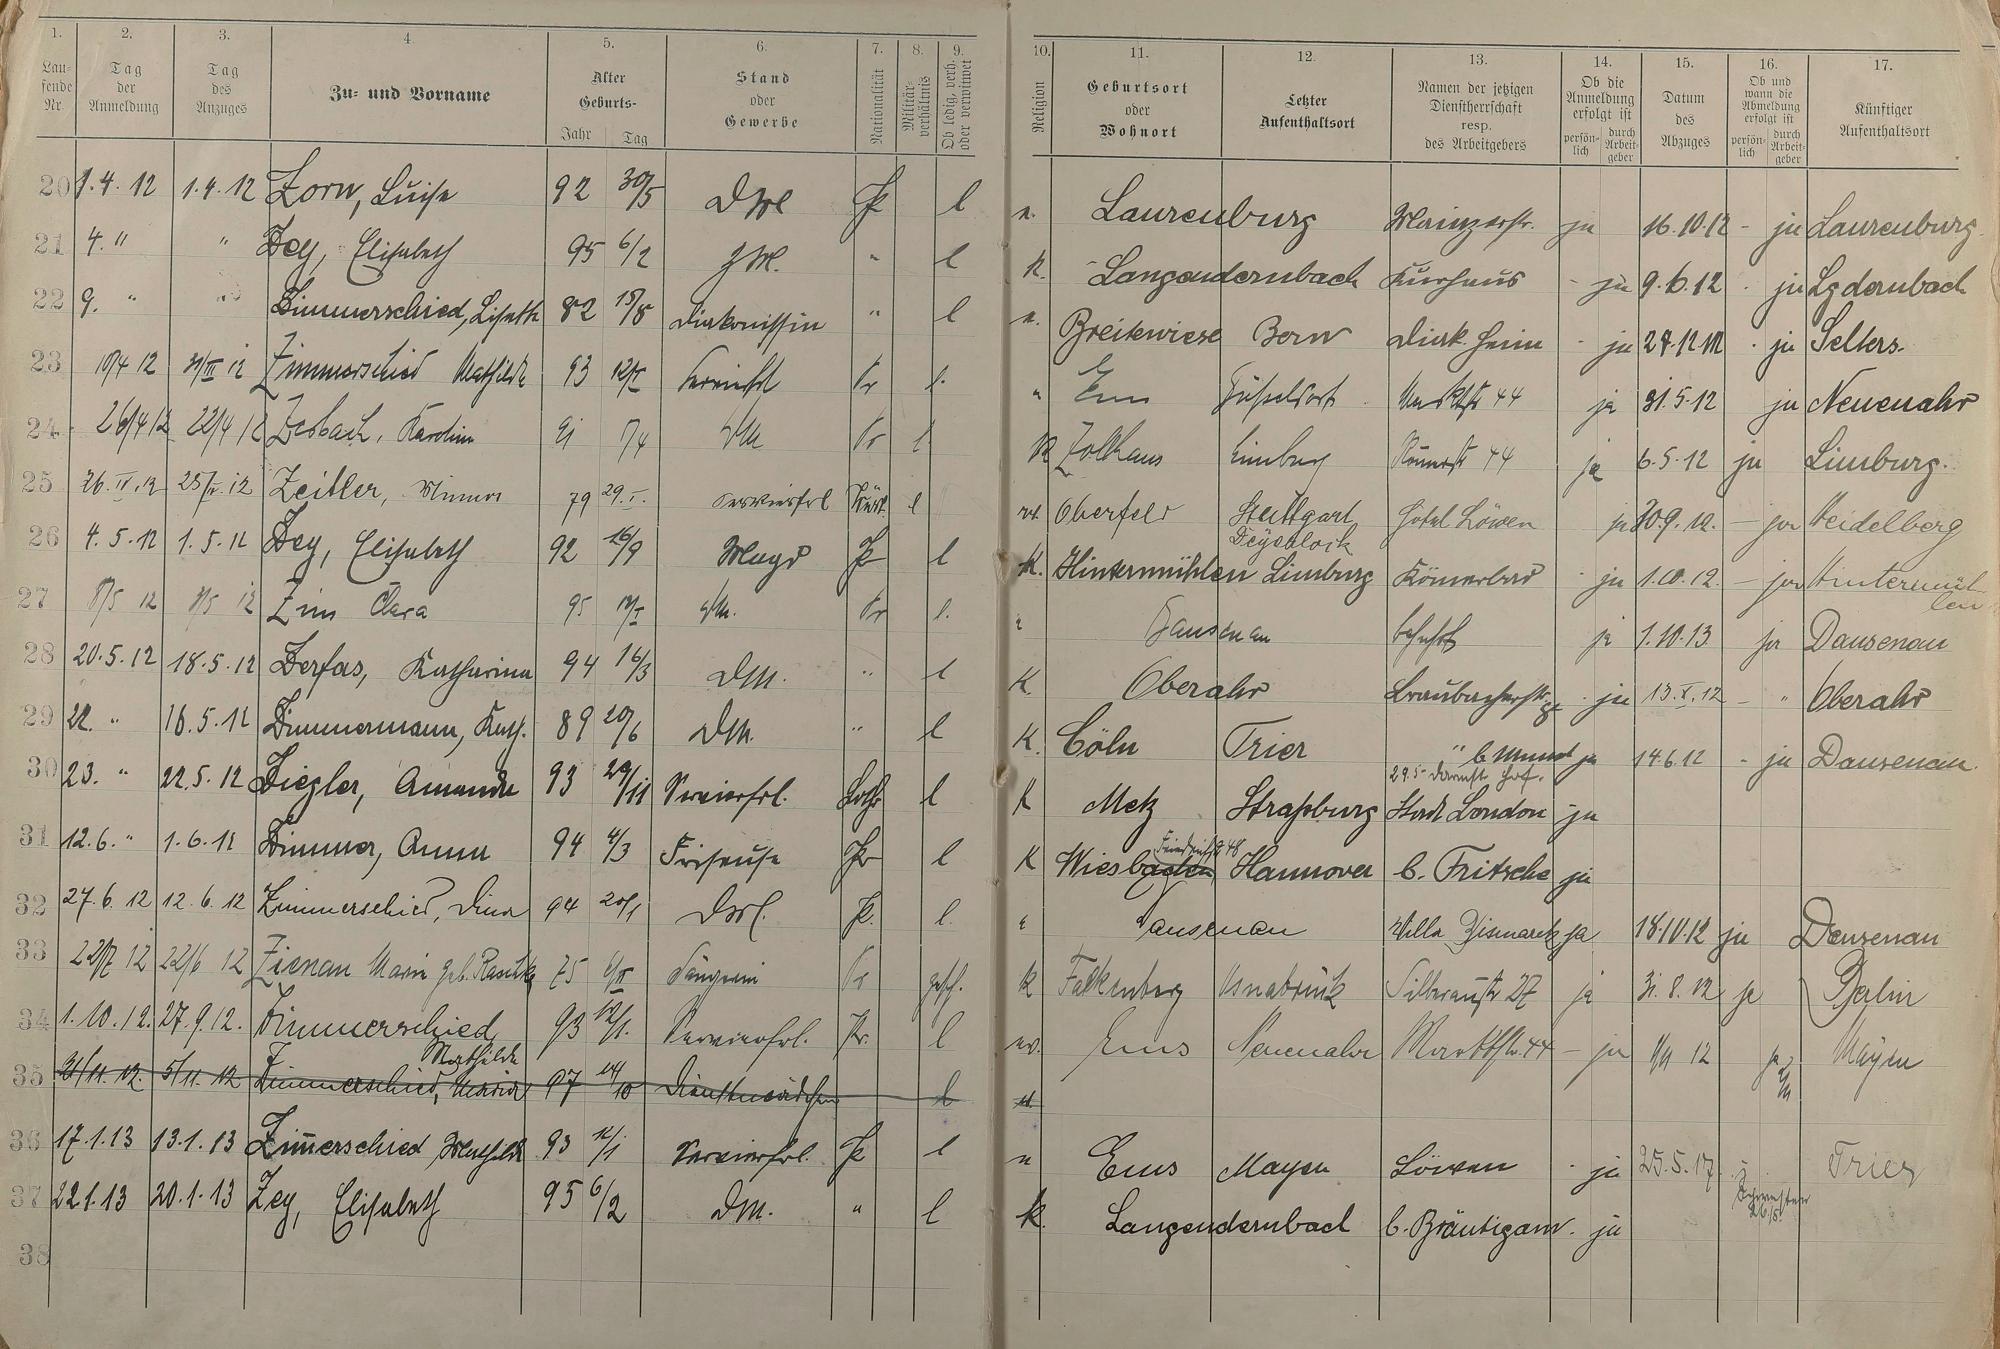 1. 2. 3. 4. 5. 6. 7. 8. 9. 10. 11. 12. 13. 14. 15. 16. 17.
Laufende Nr. Tag der Anmeldung Tag des Anzuges Zu- und Vorname Alter Geburts- Jahr Tag Stand oder Gewerbe Nationalität Militärverhältnis Ob ledig, verh. oder verwitwet Religion Geburtsort oder Wohnort Letzter Aufenthaltsort Namen der jetzigen Dienstherrschaft resp. des Arbeitgebers Ob die Anmeldung erfolgt ist persönlich durch Arbeitgeber Datum des Abzuges Ob und wann die Abmeldung erfolgt ist persönlich durch Arbeitgeber Künftiger Aufenthaltsort
20 1.4.12 1.4.12 Zorn, Luise 92 30/5 l Laurenburg Mainzerstr. ja 16.10.12 - ja Laurenburg.
21 4. " " Zey, Elisabeth 95 6/2 " l k. Langendernbach Kurhaus - ja 9.6.12 - ja Lgdernbach
22 9. " " Zimmerschied, Lisette 82 15/8 Diakonissin " l Breitwiese Born Diak. heim - ja 27.12.12 . ja Selters.
23 10/4 12 Zimmerschied Mathilde 93 Servierfrl Pr l. " Ems Düsseldorf Marktstr 44 ja 31.5.12 ja Neuenahr
24 26/4 12 22/4 12 Karolin 91 Pr l. k Zollhaus Limburg Römerstr 44 ja 6.5.12 ja Limburg.
25 26.IV.12 25/IV.12 Zeitler, Minna 79 29.I. Servierfrl Würt. l Oberfeld Stuttgart Hotel Löwen ja 30.9.12. - ja Heidelberg
26 4.5.12 1.5.12 Zey, Elisabeth 92 16/9 Magd l k. Hintermühlen Limburg Römerbad - ja 1.10.12. - ja Hintermühlen
27 8/5 12 Clara 95 DM. Pr l. " Dausenau Bahnhof ja 1.10.13 ja Dausenau
28 20.5.12 18.5.12 Zerfas, Katharina 94 16/3 DM. " l K. Oberahr Braubacherstr - ja 13.X.12 - " Oberahr
29 22. " 16.5.12 Zimmermann, Kath. 89 20/6 DM. " l K. Cöln Trier " ja 14.6.12 - ja Dausenau.
30 23. " 22.5.12 Ziegler, Amanda 93 29/11 Servierfrl. Lothr l k Metz Straßburg 29.5 Darmst. Hof. Stadt London - ja
31 12.6. " 1.6.12 Zimmer, Anna 94 4/3 Friseuse Pr l K Wiesbaden Hannover b. Fritsche ja
32 27.6.12 12.6.12 Zimmerschied, Dina 94 20/1 l. " Dausenau Villa Bismarck ja 18.10.12 ja Dausenau
33 22/7 12 22/6 12 Zienau Marie geb. 75 Sängerin Pr gesch. k Falkenberg Osnabrück Silberaustr 27 ja 31.8.12 ja Berlin
34 1.10.12. 27.9.12. Zimmerschied, Mathilde 93 12/1. Servierfrl. Pr. l ev. Ems Neuenahr Marktstr. 44 - ja 1/11 12 ja Mayen
35 21/11.12. 5/11.12 Zimmerschied, Maria 97 14/10 Dienstmädchen l
36 17.1.13 13.1.13 Zimmerschied Mathilde 93 12/1 Servierfrl. Pr l Ems Mayen Löwen - ja 25.5.17 Trier
37 22.1.13 20.1.13 Zey, Elisabeth 95 6/2 DM. " l k. Langendernbach b. Bräutigam. ja
38